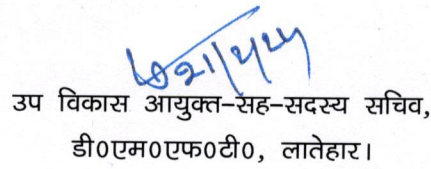 उप विकास आयुक्त-सह-सदस्य सचिव,
डी०एम०एफ०टी०, लातेहार।